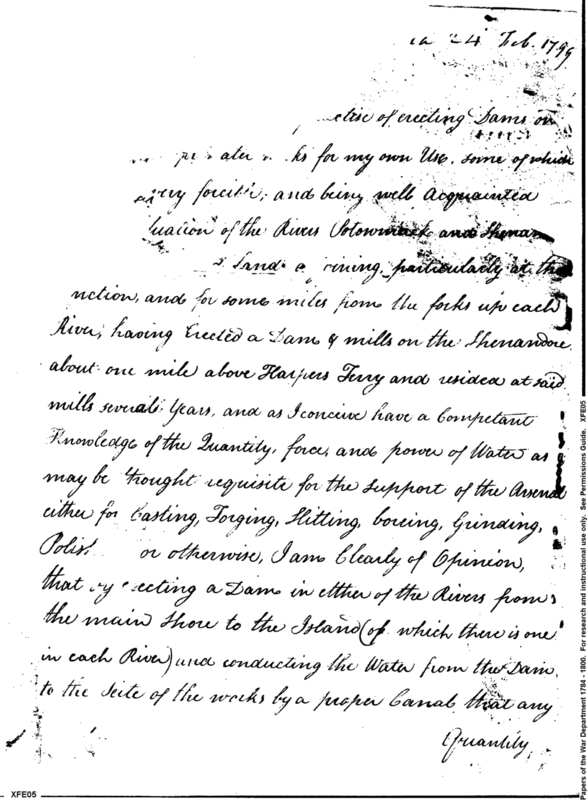 24 Feb. 1799
of erecting Dams on
for my own Use, some of which
very forcible, and being well Acquainted
of the Rivers Potowmack and Shenan
particularly at the
nction, and for some miles from the forks up each
River, having Erected a Dam & mills on the Shenandore
about one mile above Harpers Ferry and resided at said
mills several Years, and as I conceive have a Competant
Knowledge of the Quantity, force, and power of Water as
may be thought requisite for the support of the Arsenal
either for Casting, Forging, Slitting, boreing, Grinding,
Polis or otherwise, I am Clearly of Opinion,
that by erecting a Dam in either of the Rivers from
the main Shore to the Island (of which there is one
in each River) and conducting the Water from the Dam
to the Seite of the works by a proper Canal that any
Quantity
XFE05
Papers of the War Department 1784 - 1800. For research and instructional use only. See Permissions Guide. XFE05